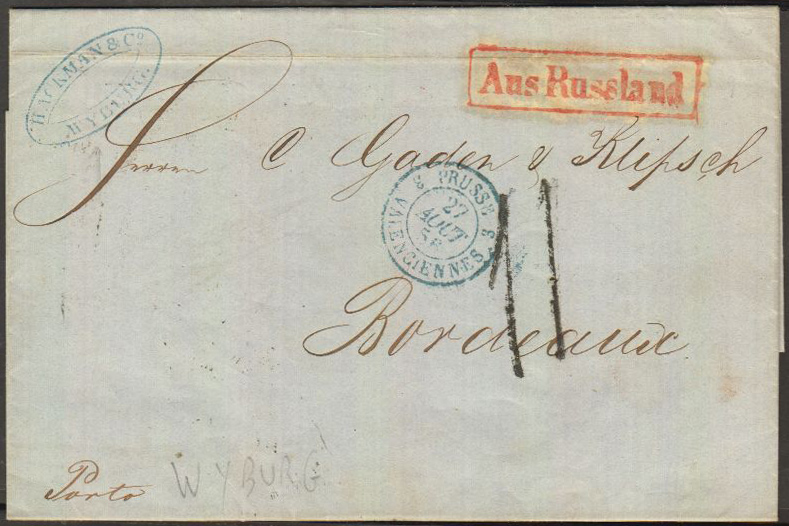 HACKMAN & Co
WYBURG.
Aus Russland
Herren C Gaden & Klipsch
PRUSSE 3 VALENCIENNES 3
27
AOUT
58
11
Bordeaux
Porto
WYBURG